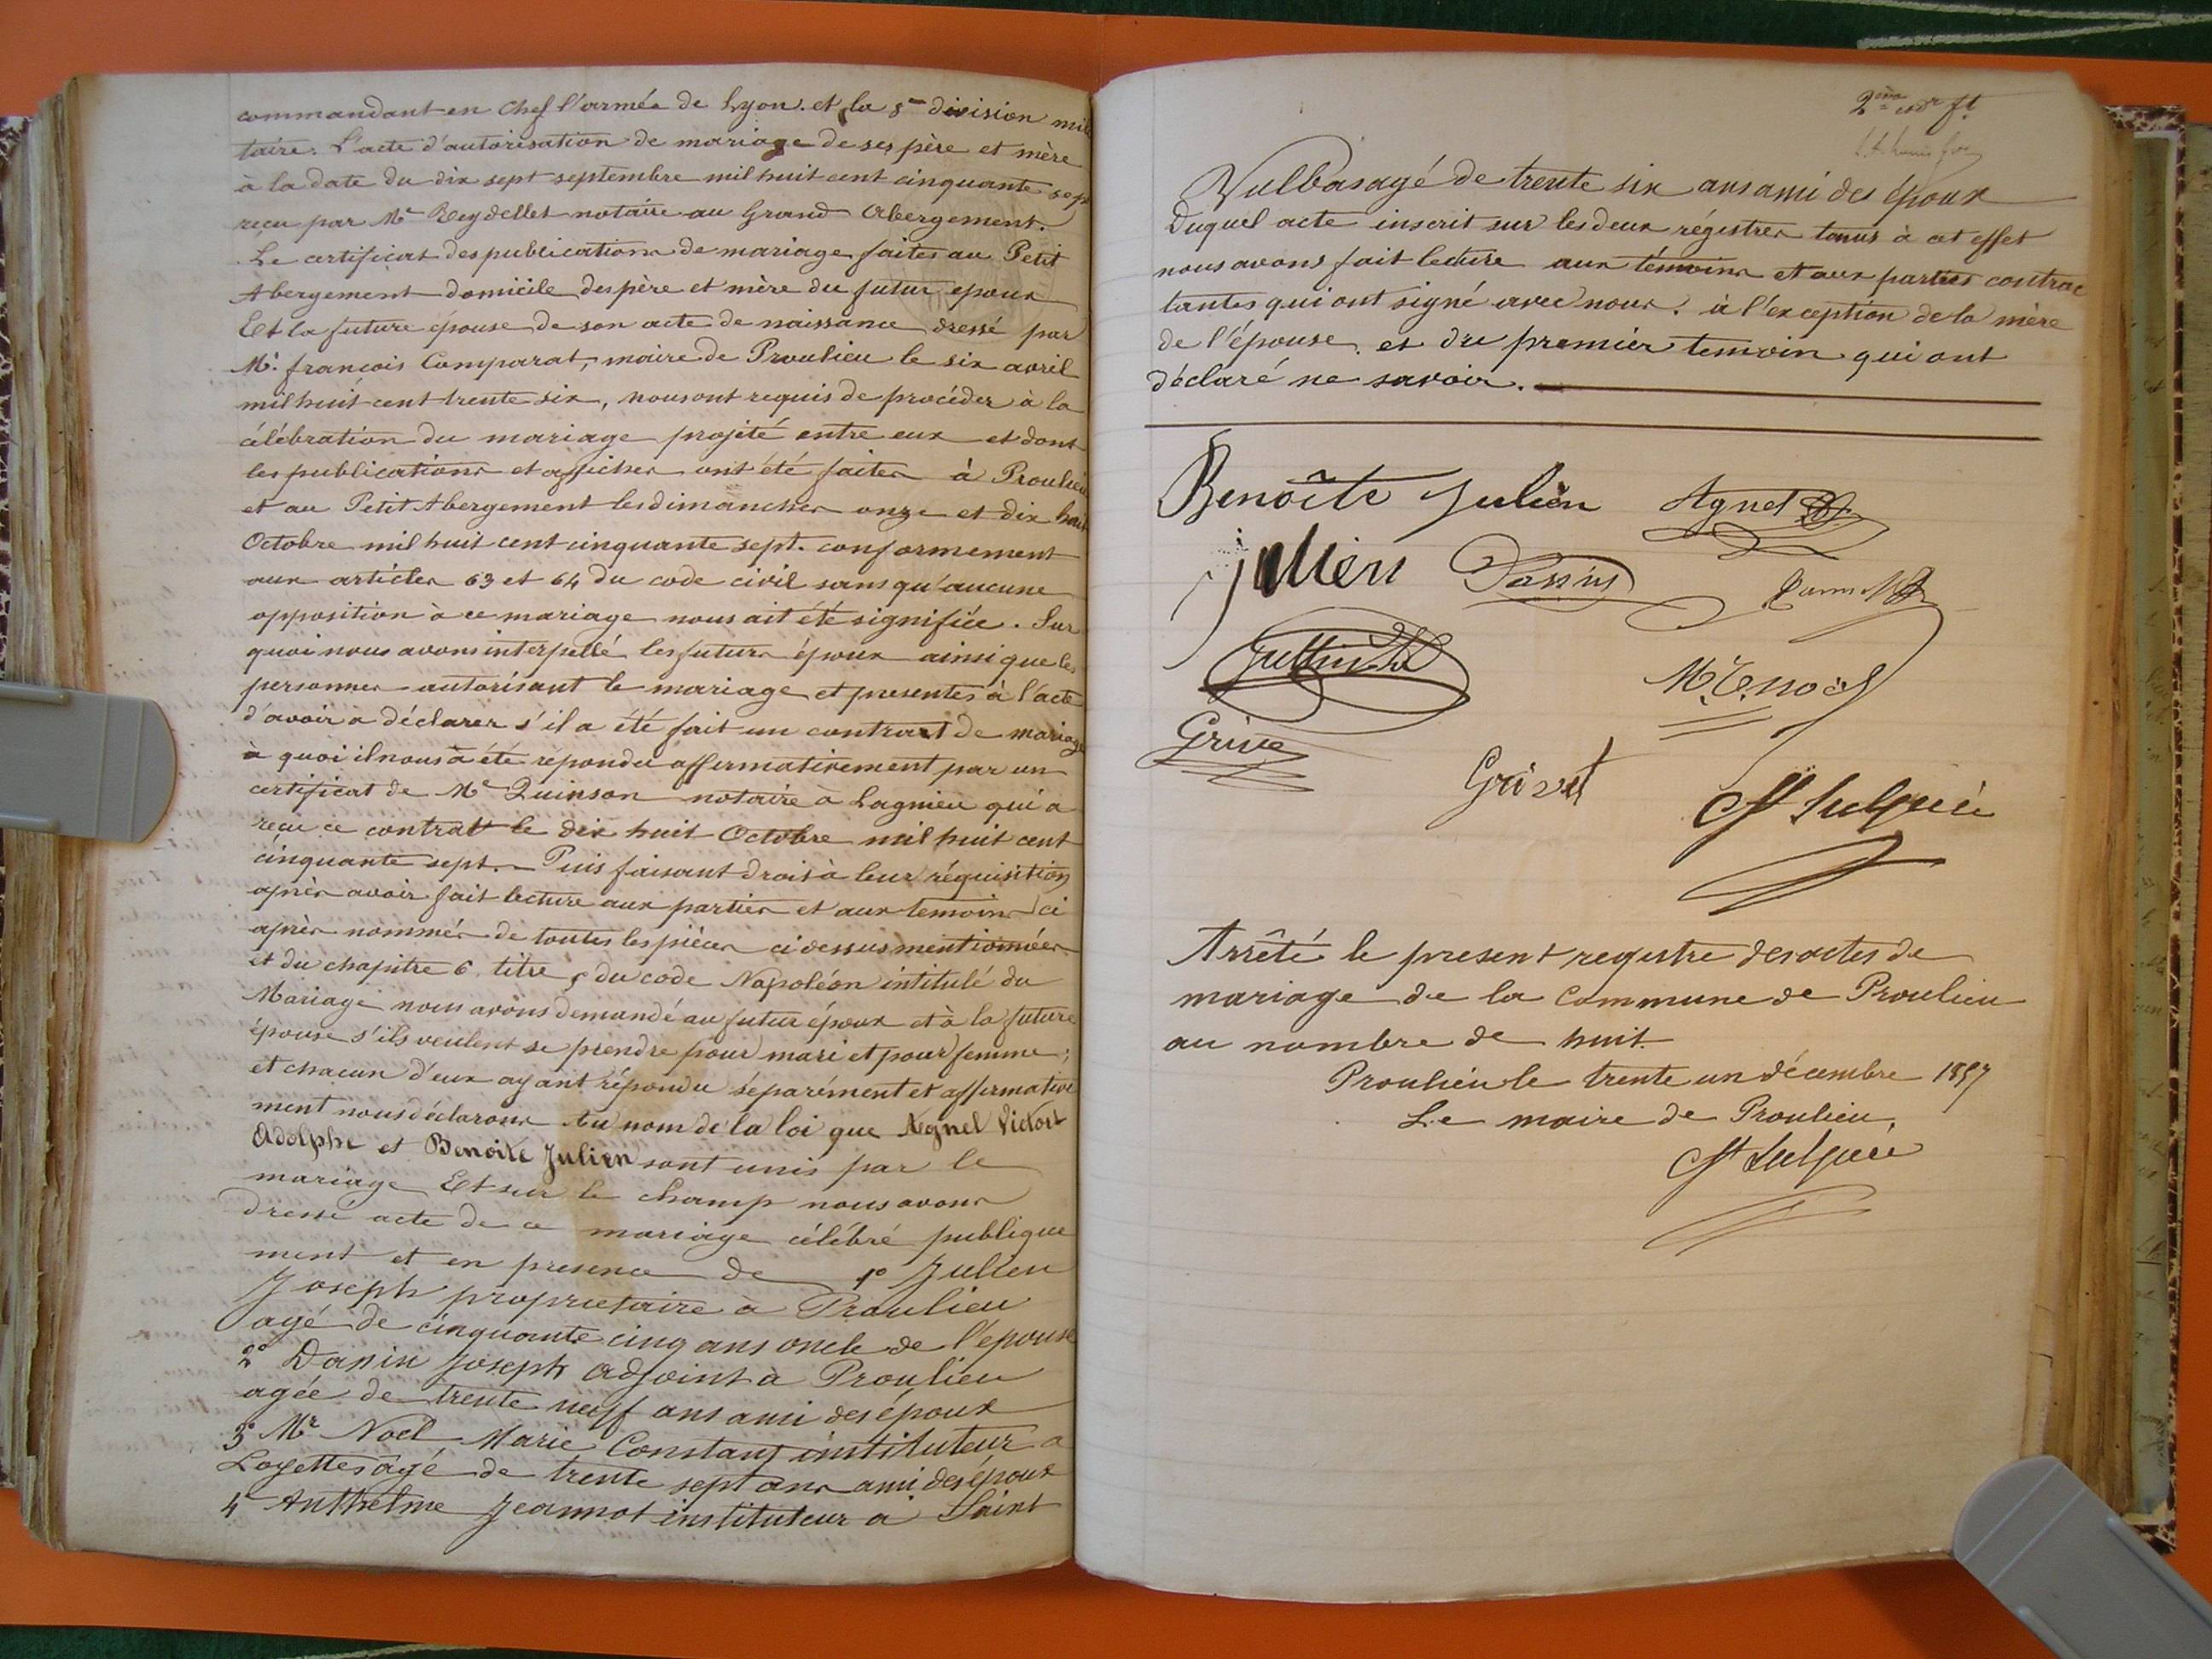 commandant en Chef l'armée de Lyon. et la 8me division mili
taire. L'acte d'autorisation de mariage de ses père et mère
à la date du dix sept septembre mil huit cent cinquante sept
reçu par Me Reydellet notaire au Grand Abergement.
Le certificat des publications de mariage faites au Petit
Abergement domicile des père et mère du futur epoux
Et la future épouse de son acte de naissance dressé par
Mr. françois Comparat, maire de Proulieu le six avril
mil huit cent trente six, nous ont requis de procéder à la
célébration du mariage projeté entre eux et dont
les publications et affiches ont été faites à Proulieu
et au Petit Abergement les dimanches onze et dix huit
Octobre mil huit cent cinquante sept. conformement
aux articles 63 et 64 du code civil sans qu'aucune
opposition à ce mariage nous ait été signifiée. Sur
quoi nous avons interpellé les futurs époux ainsi que les
personnes autorisant le mariage et presentes à l'acte
d'avoir a déclarer s'il a été fait un contrat de mariage
à quoi il nous à été répondu affirmativement par un
certificat de Me Quinson notaire à Lagnieu qui a
reçu ce contrat le dix huit Octobre mil huit cent
cinquante sept. Puis faisant droit à leur réquisition
après avoir fait lecture aux parties et aux temoins ci
après nommés de toutes les pièces ci dessus mentionnées
et du chapitre 6 titre 5 du code Napoléon intitulé du
Mariage nous avons demandé au futur époux et à la future
épouse s'ils veulent se prendre pour mari et pour femme;
et chacun d'eux ayant répondu séparément et affirmative
ment nous déclarons Au nom de la loi que Agnel Victor
Adolphe et Benoite Julien sont unis par le
mariage Et sur le champ nous avons
dressé acte de ce mariage célébré publique
ment et en presence de 1º Julien
Joseph proprietaire à Proulieu
agé de cinquante cinq ans oncle de l'épouse
2º Danin Joseph Adjoint à Proulieu
agée de trente neuf ans ami des époux
3º Mr Noel Marie Constant instituteur a
Loyettes agé de trente sept ans ami des époux
4º Anthelme Jeannot instituteur à Saint
2ème
Vulbas agé de trente six ans ami des époux
Duquel acte inscrit sur les deux régistres tenus à cet effet
nous avons fait lecture aux témoins et aux parties contrac
tantes qui ont signé avec nous. à l'exception de la mère
de l'épouse. et du premier temoin qui ont
déclaré ne savoir.
Benoîte Julien Agnel
Jullien
Grive
Grivet
Arrêté le present registre des actes de
mariage de la Commune de Proulieu
au nombre de huit.
Proulieu le trente un décembre 1857
Le maire de Proulieu,
St Sulpice